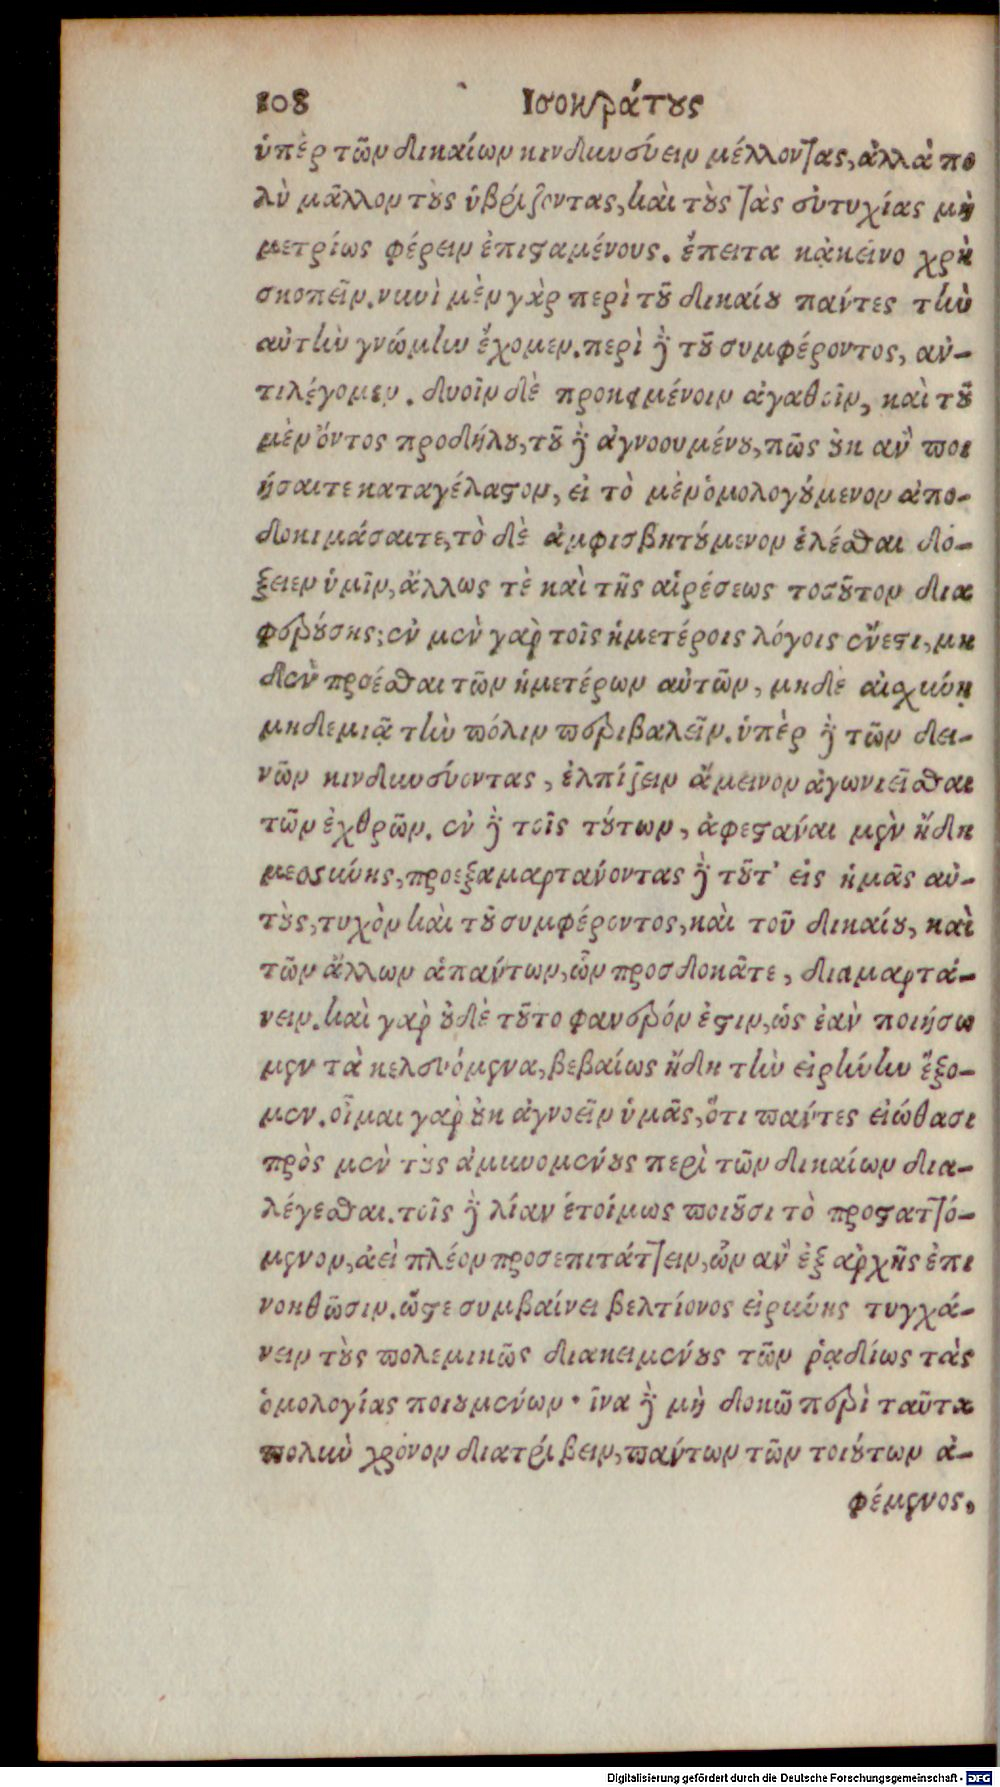 108 Ισοκράτους
ὑπὲρ τῶν δικαίων κινδυνεύειν μέλλοντας, ἀλλὰ πο
λὺ μᾶλλον τοὺς ὑβρίζοντας, καὶ τοὺς τὰς εὐτυχίας μὴ
μετρίως φέρειν ἐπισταμένους. ἔπειτα κᾀκεῖνο χρὴ
σκοπεῖν. νυνὶ μὲν γὰρ περὶ τοῦ δικαίου πάντες τὴν
αὐτὴν γνώμην ἔχομεν. περὶ δὲ τοῦ συμφέροντος, ἀν-
τιλέγομεν. δυοῖν δὲ προκειμένοιν ἀγαθοῖν, καὶ τοῦ
μὲν ὄντος προδήλου, τοῦ δὲ ἀγνοουμένου, πῶς οὐκ ἂν ποι
ήσαιτε καταγέλαστον, εἰ τὸ μὲν ὁμολογούμενον ἀπο-
δοκιμάσαιτε, τὸ δὲ ἀμφισβητούμενον ἑλέσθαι δό-
ξειεν ὑμῖν, ἄλλως τὲ καὶ τῆς αἱρέσεως τοσοῦτον δια
φερούσης; ἐν μὲν γὰρ τοῖς ἡμετέροις λόγοις ἔνεστι, μη
δὲν προέσθαι τῶν ἡμετέρων αὐτῶν, μηδὲ αἰσχύνῃ
μηδεμιᾷ τὴν πόλιν περιβαλεῖν. ὑπὲρ δὲ τῶν δει-
νῶν κινδυνεύοντας, ἐλπίζειν ἄμεινον ἀγωνιεῖσθαι
τῶν ἐχθρῶν. ἐν δὲ τοῖς τούτων, ἀφεστάναι μὲν ἤδη
μεσσήνης, προεξαμαρτάνοντας δὲ τοῦτ’ εἰς ἡμᾶς αὐ-
τοὺς, τυχὸν καὶ τοῦ συμφέροντος, καὶ τοῦ δικαίου, καὶ
τῶν ἄλλων ἁπάντων, ὧν προσδοκᾶτε, διαμαρτά-
νειν. καὶ γὰρ οὐδὲ τοῦτο φανερόν ἐστιν, ὡς ἐὰν ποιήσω
μεν τὰ κελευόμενα, βεβαίως ἤδη τὴν εἰρήνην ἕξο-
μεν. οἶμαι γὰρ οὐκ ἀγνοεῖν ὑμᾶς, ὅτι πάντες εἰώθασι
πρὸς μὲν τοὺς ἀμυνομένους περὶ τῶν δικαίων δια-
λέγεσθαι. τοῖς δὲ λίαν ἑτοίμως ποιοῦσι τὸ προσταττό-
μενον, ἀεὶ πλέον προσεπιτάττειν, ὧν ἂν ἐξ ἀρχῆς ἐπι
νοηθῶσιν. ὥστε συμβαίνει βελτίονος εἰρήνης τυγχά-
νειν τοὺς πολεμικῶς διακειμένους τῶν ῥᾳδίως τὰς
ὁμολογίας ποιουμένων · ἵνα δὲ μὴ δοκῶ περὶ ταῦτα
πολὺν χρόνον διατρίβειν, πάντων τῶν τοιούτων ἀ-
φέμενος,
Digitalisierung gefördert durch die Deutsche Forschungsgemeinschaft - DFG